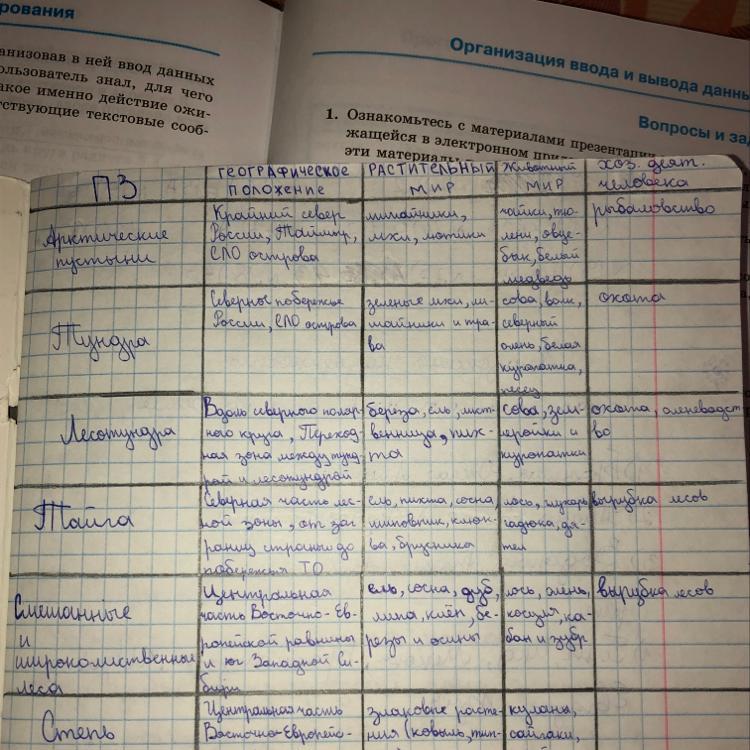 рования
анизовав в ней ввод данных
ользователь знал, для чего
акое именно действие ожи-
тствующие текстовые сооб-
Организация ввода и вывода данны
Вопросы и зад
1. Ознакомьтесь с материалами презентации
жащейся в электронном при
эти материалы
ПЗ
ГЕОГРАФИЧЕСКОЕ
ПОЛОЖЕНИЕ
РАСТИТЕЛЬНЫЙ
МИР
Животный
МИР
хоз. деят.
человека
Арктические
пустыни
Крайний север
России, Таймыр,
СЛО острова
лишайники,
мхи, мотики
чайки, тю-
лени, овце-
бык, белый
медведь
рыбаловство
Тундра
Северное побережье
России, СЛО острова
зеленые мхи, ли-
шайники и тра-
ва
сова, волк,
северный
олень, белая
куропатка,
песец
охота
Лесотундра
Вдоль северного поляр-
ного круга, Переход-
ная зона между тунд-
рой и лесотундрой
берёза, ель, лист-
венница, пих-
та
сова, зем-
леройки и
куропатки
охота, оленеводст
во
Тайга
Северная часть лес-
ной зоны, от зап
границ страны до
побережья ТО
ель, пихта, сосна,
шиповник, клюк-
ва, брусника
лось, глухарь
гадюка, дя-
тел
вырубка лесов
Смешанные
и
широколиственные
леса
Центральная
часть Восточно-Ев-
ропейской равнины
и юг Западной Си-
бири
ель, сосна, дуб,
липа, клён, бе-
резы и осины
лось, олень,
косуля, ка-
бан и зубр
вырубка лесов
Степь
Центральная часть
Восточно-Европейс-
злаковые расте-
ния (ковыль, тип-
куланы,
сайгаки,